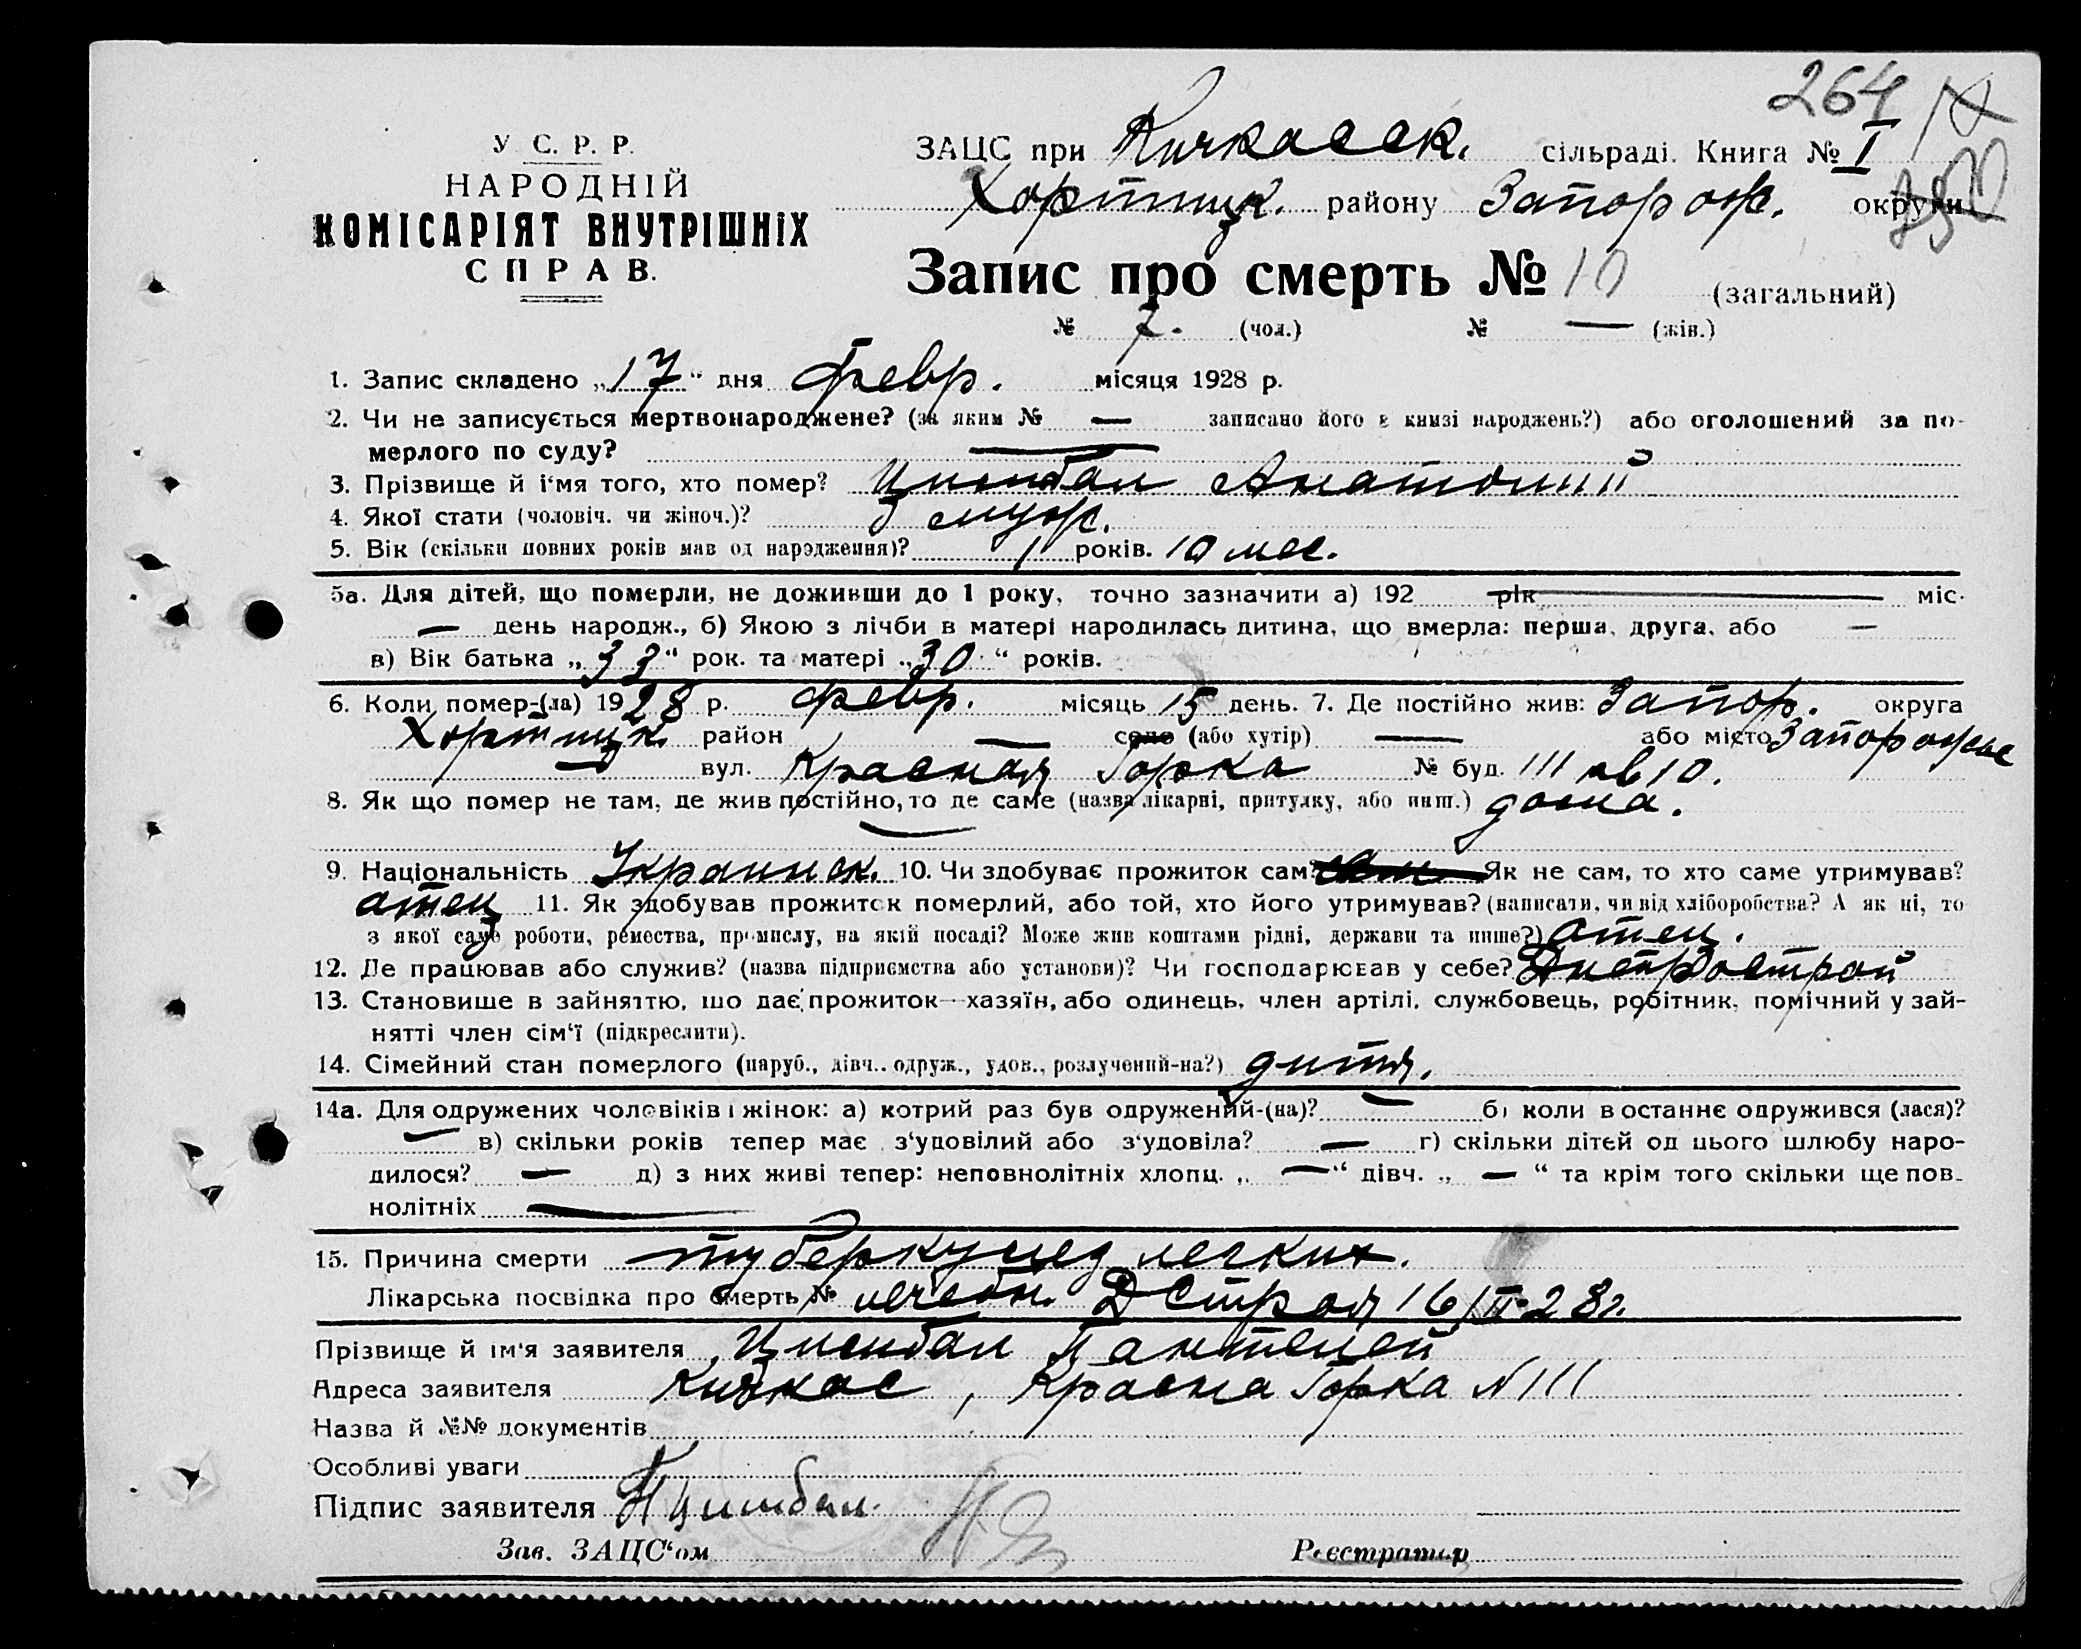 264
У. С. Р. Р.
НАРОДНІЙ
КОМІСАРІЯТ ВНУТРІШНІХ
СПРАВ.
ЗАЦС при Кичкасск. сільраді. Книга № I
Хортицк. района Запорож. округи
Запис про смерть № 10 (загальний)
№ 7. (чол.) № — (жін.)
1. Запис складено „17“ дня февр. місяця 1928 р.
2. Чи не записується мертвонароджене? (за яким № — записано його в книзі народжень?) або оголошений за по-
мерлого по суду? —
3. Прізвище й і'мя того, хто помер? Цимбал Анатолий
4. Якої стати (чоловіч. чи жіноч.)? муж.
5. Вік (скільки повних років мав од народження)? 1 років. 10 мес.
5а. Для дітей, що померли, не доживши до 1 року, точно зазначити а) 192 рік — міс.
— день народж., б) Якою з лічби в матері народилась дитина, що вмерла: перша, друга, або —
в) Вік батька „33“ рок. та матері „30“ років.
6. Коли помер-(ла) 1928 р. февр. місяць 15 день. 7. Де постійно жив: Запор. округа
Хортицк. район — село (або хутір) — або місто Запорожье
— вул. Красная Горка № буд. 111 кв 10.
8. Як що помер не там, де жив постійно, то де саме (назва лікарні, притулку, або инш.) дома.
—
9. Національність Украинск. 10. Чи здобуває прожиток сам? Як не сам, то хто саме утримував?
отец 11. Як здобував прожиток померлий, або той, хто його утримував? (написати, чи від хліборобства? А як ні, то
з якої саме роботи, ремества, промислу, на якій посаді? Може жив коштами рідні, держави та инше?) отец.
12. Де працював або служив? (назва підприємства або установи)? Чи господарював у себе? Днепрострой
13. Становище в зайняттю, що дає прожиток—хазяїн, або одинець, член артілі, службовець, робітник, помічний у зай-
нятті член сім'ї (підкреслити).
14. Сімейний стан померлого (паруб., дівч., одруж., удов., розлучений-на?) дитя.
14а. Для одружених чоловіків і жінок: а) котрий раз був одружений-(на)? — б) коли востаннє одружився (лася)?
— в) скільки років тепер має з'удовілий або з'удовіла? — г) скільки дітей од цього шлюбу наро-
дилося? — д) з них живі тепер: неповнолітніх хлопц. „—“ дівч. „—“ та крім того скільки ще пов-
нолітніх —
15. Причина смерти туберкулез легких.
Лікарська посвідка про смерть № лечебн. ДСтроя 16/II-28г.
Прізвище й ім'я заявителя Цимбал Пантелей
Адреса заявителя Кичкас, Красна Горка N 111
Назва й №№ документів
Особливі уваги
Підпис заявителя П Цимбал
Зав. ЗАЦС'ом
Реєстратор